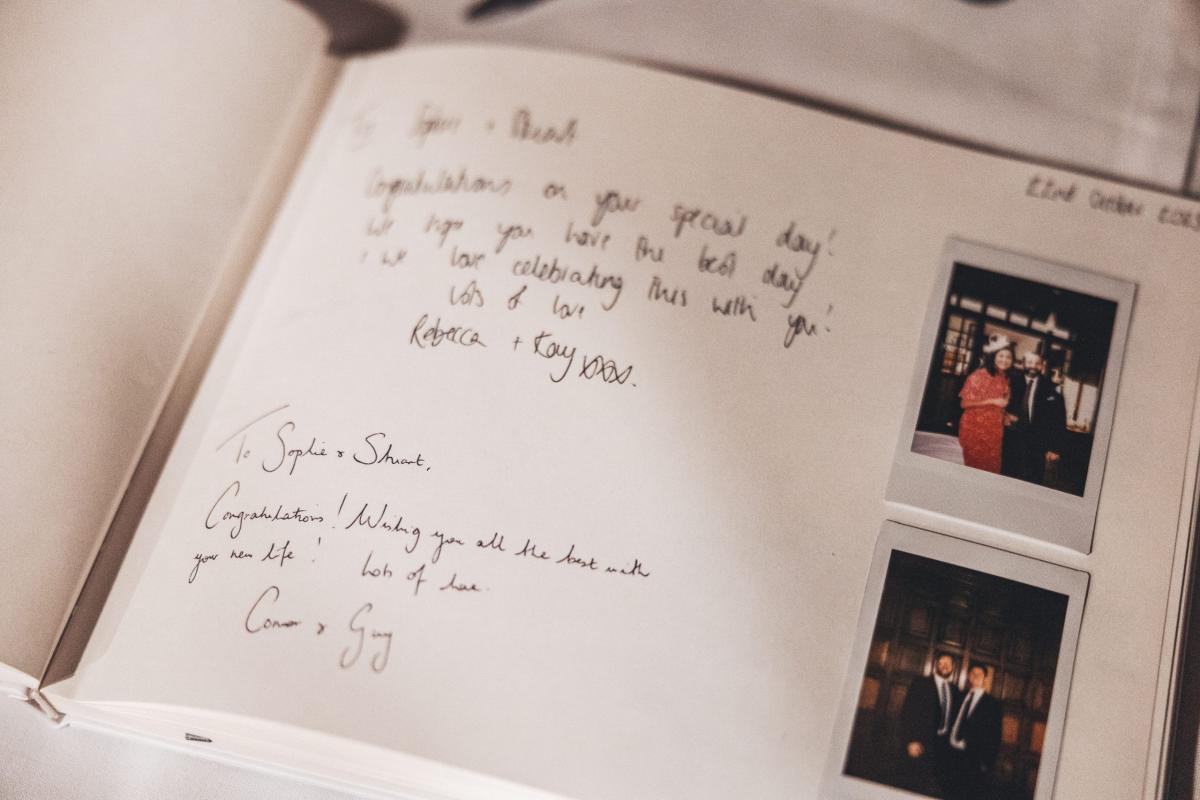 To Sophie + Stuart
22nd October
Congratulations on your special day!
We hope you have the best day
+ we love celebrating this with you!
Lots of love
Rebecca + Kay xxxx.
To Sophie & Stuart,
Congratulations! Wishing you all the best with
your new life! Lots of love.
Connor & Guy